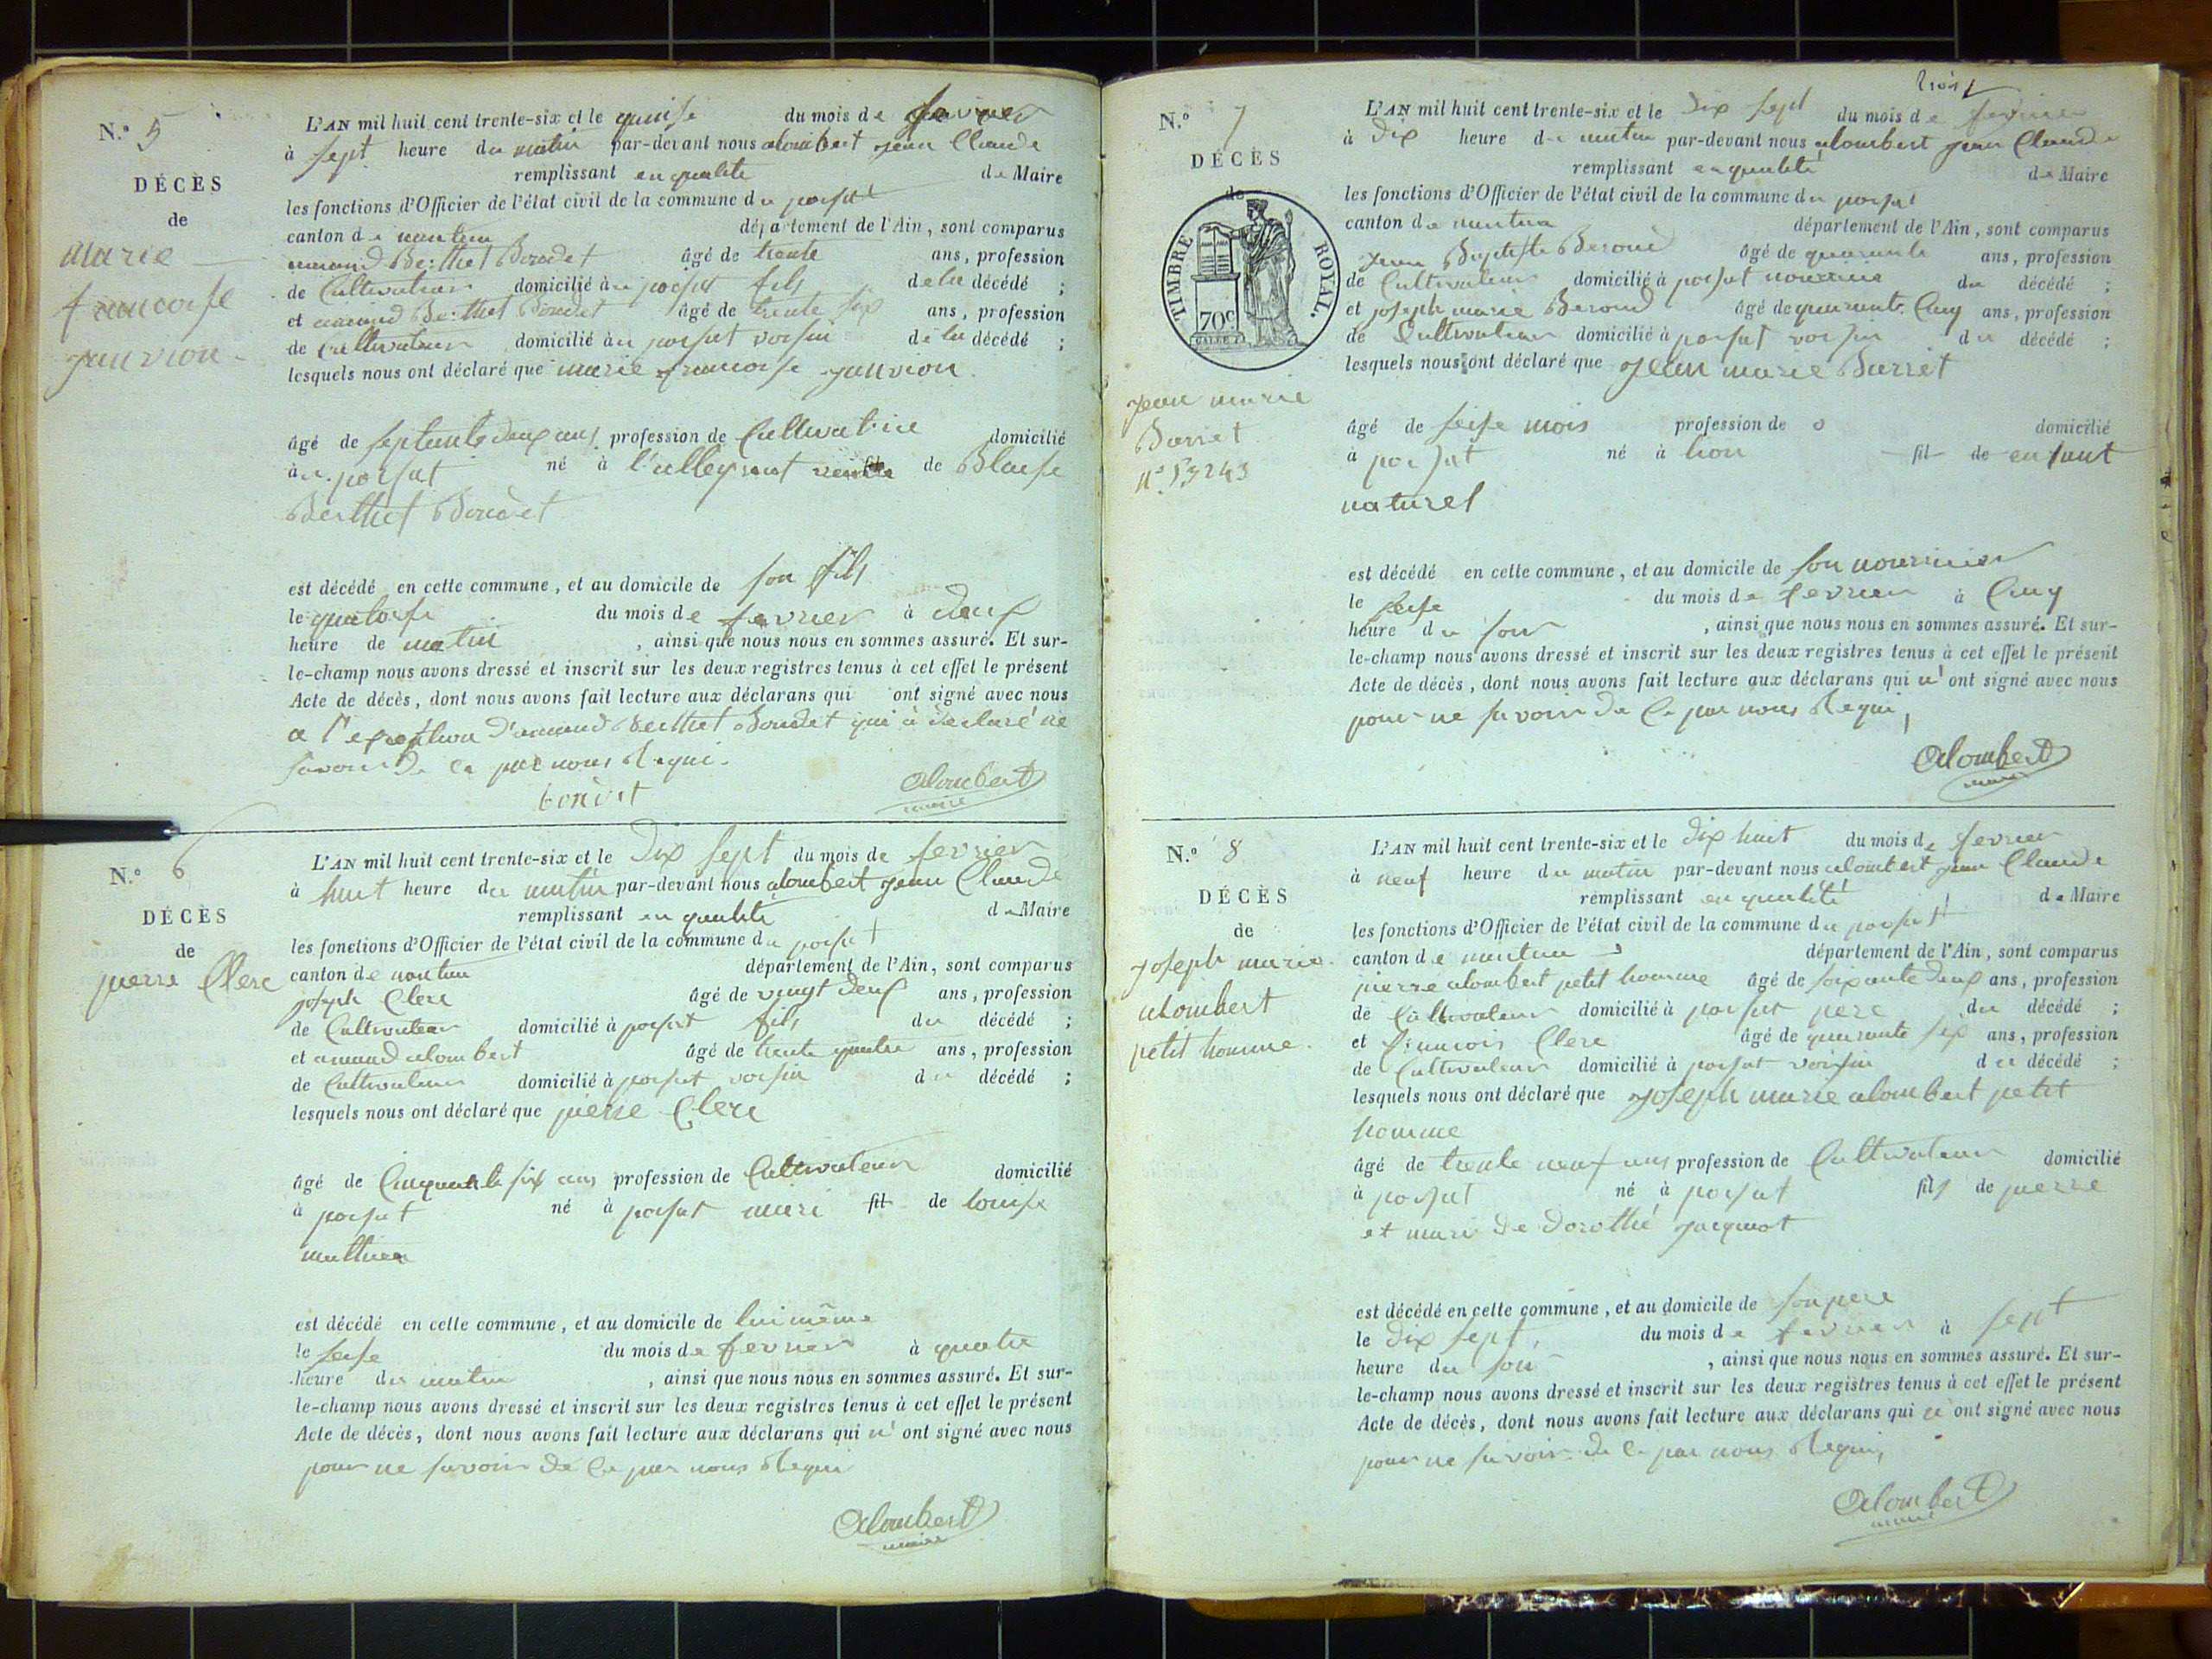 N.o 5
DÉCÈS
de
marie
francoise
janvion
L'AN mil huit cent trente-six et le quinse du mois de fevrier
à sept heure du matin par-devant nous alombert jean Claude
remplissant en qualité de Maire
les fonctions d'Officier de l'état civil de la commune du poisat
canton de nantua département de l'Ain, sont comparus
amand Berthet Bondet âgé de trente ans, profession
de Cultivateur domicilié au poisat fils de la décédé ;
et amand Berthet Bondet âgé de trente six ans, profession
de cultivateur domicilié au poisat voisin de la décédé ;
lesquels nous ont déclaré que marie francoise janvion
âgé de septante deux ans profession de Cultivatrice domicilié
au poisat né à l'alleyriat de Blaise
Berthet Bondet
est décédé en cette commune, et au domicile de son fils
le quatorse du mois de fevrier à deux
heure de matin , ainsi que nous nous en sommes assuré. Et sur-
le-champ nous avons dressé et inscrit sur les deux registres tenus à cet effet le présent
Acte de décès, dont nous avons fait lecture aux déclarans qui ont signé avec nous
a l'exeption d'amand Berthet Bondet qui à déclaré ne
savoir de ce par nous Requi.
bondet alombert
maire
N.o 6
DÉCÈS
de
pierre Clerc
L'AN mil huit cent trente-six et le Dix sept du mois de fevrier
à huit heure du matin par-devant nous alombert jean Claude
remplissant en qualité de Maire
les fonctions d'Officier de l'état civil de la commune du poisat
canton de nantua département de l'Ain, sont comparus
joseph Clerc âgé de vingt deux ans, profession
de Cultivateur domicilié à poisat fils du décédé ;
et amand alombert âgé de trente quatre ans, profession
de Cultivateur domicilié à poisat voisin du décédé ;
lesquels nous ont déclaré que pierre Clerc
âgé de Cinquante six ans profession de Cultivateur domicilié
à poisat né à poisat mari fil de louise
mathieu
est décédé en cette commune, et au domicile de lui même
le seise du mois de fevrier à quatre
heure du matin , ainsi que nous nous en sommes assuré. Et sur-
le-champ nous avons dressé et inscrit sur les deux registres tenus à cet effet le présent
Acte de décès, dont nous avons fait lecture aux déclarans qui n' ont signé avec nous
pour ne savoir de ce par nous Requi
alombert
maire
trois
N.o 7
DÉCÈS
de
TIMBRE ROYAL.
70c
jean marie
Barret
n.o 53243
L'AN mil huit cent trente-six et le Dix sept du mois de fevrier
à Dix heure du matin par-devant nous alombert jean Claude
remplissant en qualité de Maire
les fonctions d'Officier de l'état civil de la commune du poisat
canton de nantua département de l'Ain, sont comparus
jean Baptiste Beroud âgé de quarante ans, profession
de Cultivateur domicilié à poisat nourricié du décédé ;
et joseph marie Beroud âgé de quarante Cinq ans, profession
de Cultivateur domicilié à poisat voisin du décédé ;
lesquels nous ont déclaré que jean marie Barret
âgé de seise mois profession de o domicilié
à poisat né à lion fil de enfant
naturel
est décédé en cette commune, et au domicile de son nourricier
le seise du mois de fevrier à Cinq
heure du soir , ainsi que nous nous en sommes assuré. Et sur-
le-champ nous avons dressé et inscrit sur les deux registres tenus à cet effet le présent
Acte de décès, dont nous avons fait lecture aux déclarans qui n' ont signé avec nous
pour ne savoir de ce par nous Requi,
alombert
maire
N.o 8
DÉCÈS
de
joseph marie
alombert
petit homme.
L'AN mil huit cent trente-six et le dix huit du mois de fevrier
à neuf heure du matin par-devant nous alombert jean Claude
remplissant en qualité de Maire
les fonctions d'Officier de l'état civil de la commune du poisat
canton de nantua département de l'Ain, sont comparus
pierre alombert petit homme âgé de soixante deux ans, profession
de Cultivateur domicilié à poisat pere du décédé ;
et francois Clerc âgé de quarante six ans, profession
de Cultivateur domicilié à poisat voisin du décédé ;
lesquels nous ont déclaré que joseph marie alombert petit
homme
âgé de trente neuf ans profession de Cultivateur domicilié
à poisat né à poisat fils de pierre
et mari de Dorothé jacquiot
est décédé en cette commune, et au domicile de son pere
le dix sept, du mois de fevrier à sept
heure du soir , ainsi que nous nous en sommes assuré. Et sur-
le-champ nous avons dressé et inscrit sur les deux registres tenus à cet effet le présent
Acte de décès, dont nous avons fait lecture aux déclarans qui n' ont signé avec nous
pour ne savoir de ce par nous Requi,
alombert
maire